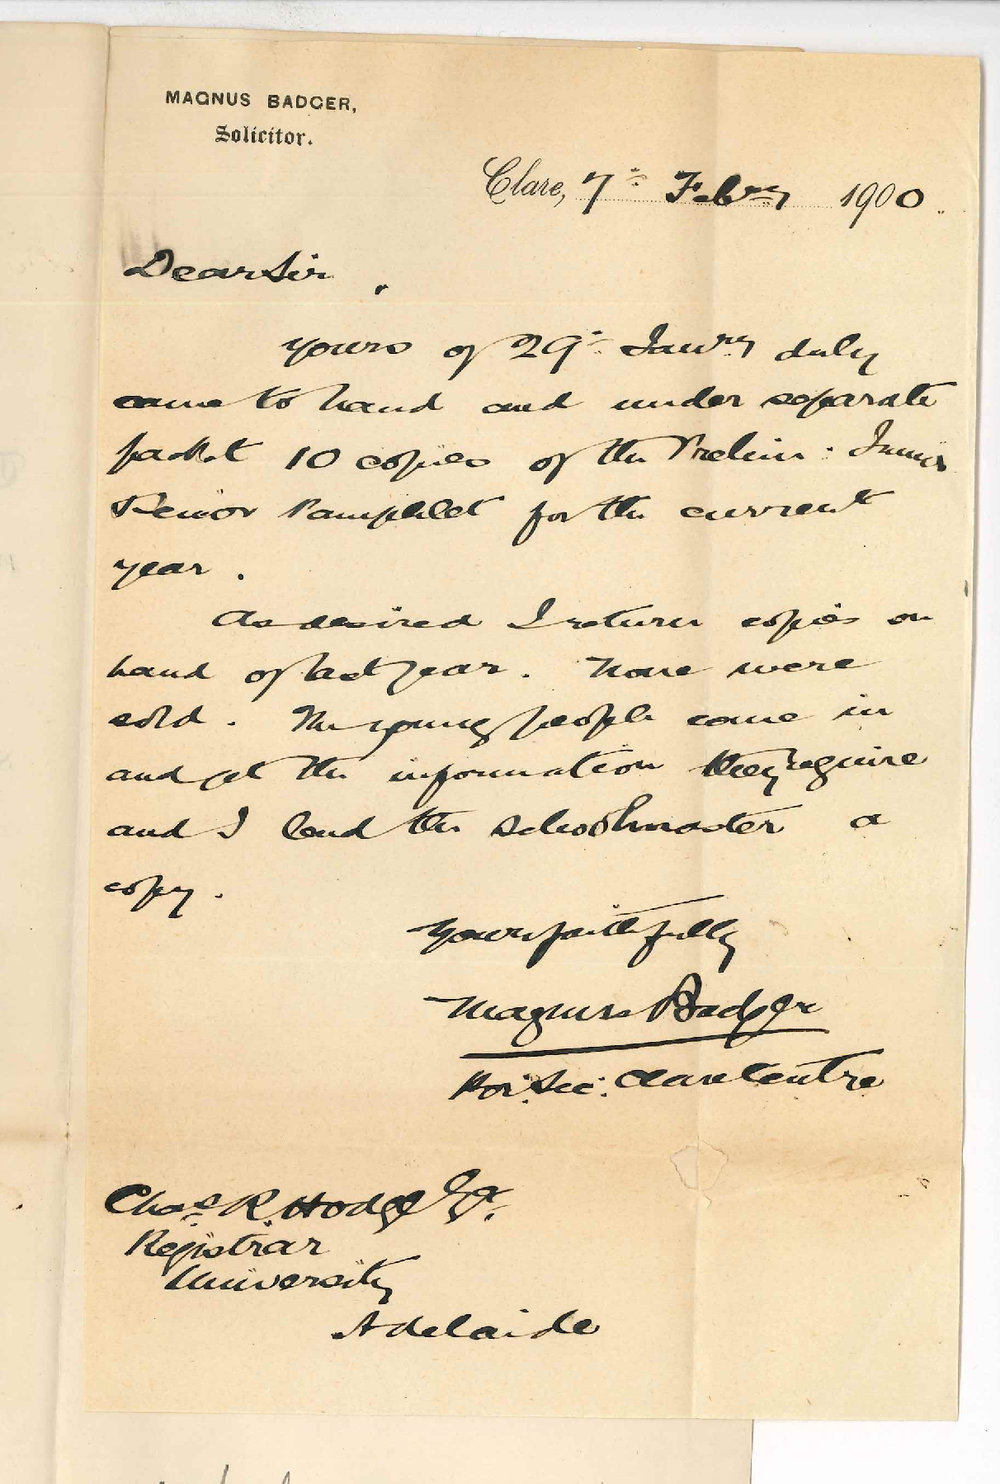 MAGNUS BADGER,
Solicitor.
Clare, 7th Febry 1900.
Dear Sir,
Yours of 29th Janry duly
came to hand and under separate
packet 10 copies of the Prelim: Junior
Senior Pamphlet for the current
year.
As desired I return copies on
hand of last year. None were
sold. The young people come in
and get the information they require
and I lend the schoolmaster a
copy.
Yours faithfully
Magnus Badger
Hon: Sec: Clare Centre
Chas R. Hodge Esq.
Registrar
University
Adelaide